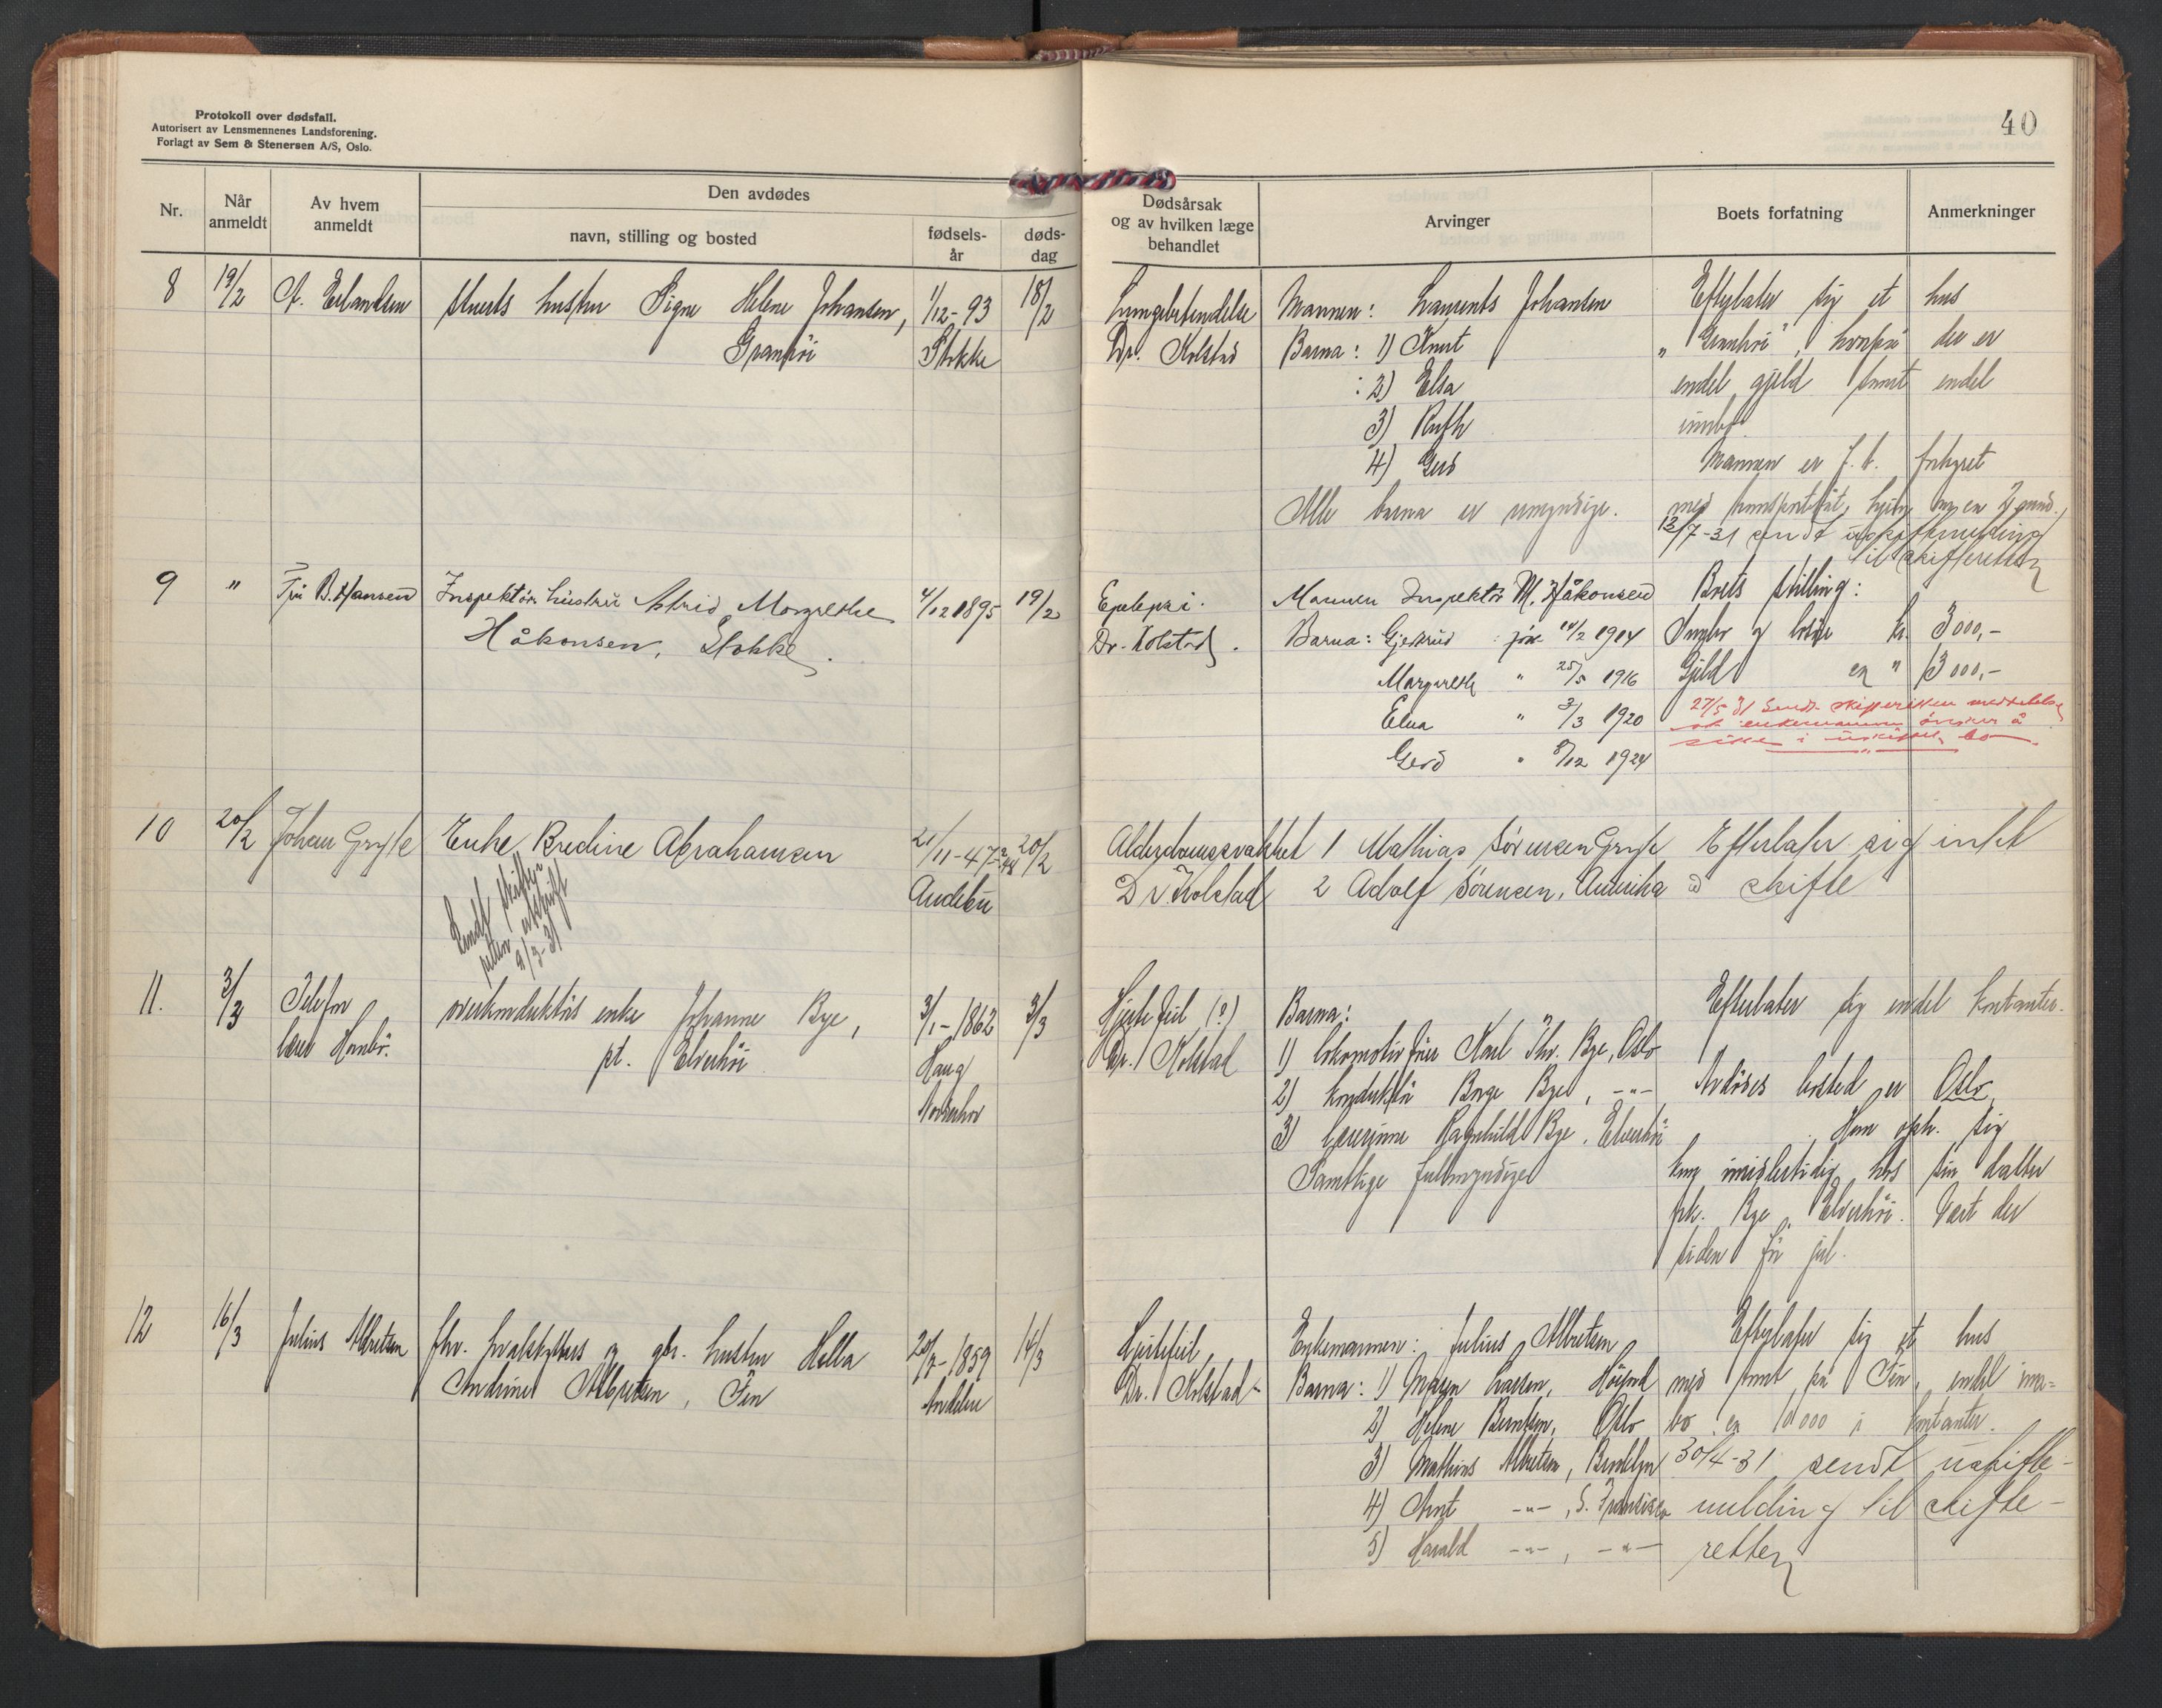 Protokoll over dødsfall.
Autorisert av Lensmennenes Landsforening.
Forlagt av Sem & Stenersen A/S, Oslo.
40
Nr.
Når anmeldt
Av hvem anmeldt
Den avdødes
navn, stilling og bosted
fødsels-år
døds-dag
Dødsårsak og av hvilken læge behandlet
Arvinger
Boets forfatning
Anmerkninger
8 19/2 A. Erlandsen Stuerts hustru Signe Helene Johansen, 1/12-93 18/2
Granhöi Stokke
Lungebetendelse
Dr. Kolstad
Mannen: Laurents Johansen
Barna: 1) Knut
2) Elsa
3) Ruth
4) Gerd
Alle barna er umyndige.
Efterlater sig et hus
"Granhöi", hvorpå der er
endel gjeld samt endel
innbo.
Mannen er f. t. forhyret
13/7-31 sendt uskiftmelding
til skifteretten
9 " B. Hansen Inspektör hustru Astrid Margrethe 4/12 1895 19/2
Håkonsen, Stokke.
Epilepsi.
Dr. Kolstad.
Mannen Inspektör M. Håkonsen
Barna: Gjertrud 14/2 1914
Margrethe " 25/5 1916
Elna " 3/3 1920
Gerd " 8/12 1924
Boets stilling:
Innbo og lösöre kr. 3000,-
Gjeld ca " 3000,-
27/5 31 Sendt skifteretten meddelelse
at enkemannen önsker å
sitte i uskiftet bo.
10 20/2 Johan Gryte Enke Kredine Abrahamsen 21/11-47 20/2
Andebu
Sendt skifte-
retten utskrift
9/3-31
Alderdomssvakhet
Dr. Kolstad
1 Mathias Sörensen Gryte
2 Adolf Sörensen, Amerika
Efterlater sig intet
å skifte
11. 3/3 Telefon overkonduktörs enke Johanne Bye, 3/1-1862 3/3
pt. Elverhöi Haug
Norderhov
Hjertefeil (?)
Dr. Kolstad
Barna:
1) lokomotivförer Karl Thv. Bye, Oslo
2) konduktör Borge Bye, -"-
3) lærerinne Ragnhild Bye, Elverhöi
Samtlige fullmyndige
Efterlater sig endel kontanter.
Avdödes bosted er Oslo
Hun oph. sig
kun midlertidig hos sin datter
frk. Bye, Elverhöi. Vært der
siden för jul.
12 16/3 Julius Albretsen fhv. hvalskytters og gbr. hustru Hella 25/7-1859 14/3
Andrine Albretsen, Fén Andebu
Hjertefeil,
Dr. Kolstad
Enkemannen: Julius Albretsen
Barna: 1) Maren Larsen, Höijord
2) Helene Berntsen, Oslo
3) Mathias Albretsen, Brooklyn
4) Arnt -"-, S. Fransisko
5) Harald -"-, -"-
Efterlater sig et hus
med tomt på Fén, endel inn-
bo ca 10000 i kontanter.
30/4-31 sendt uskifte-
melding til skifte-
retten